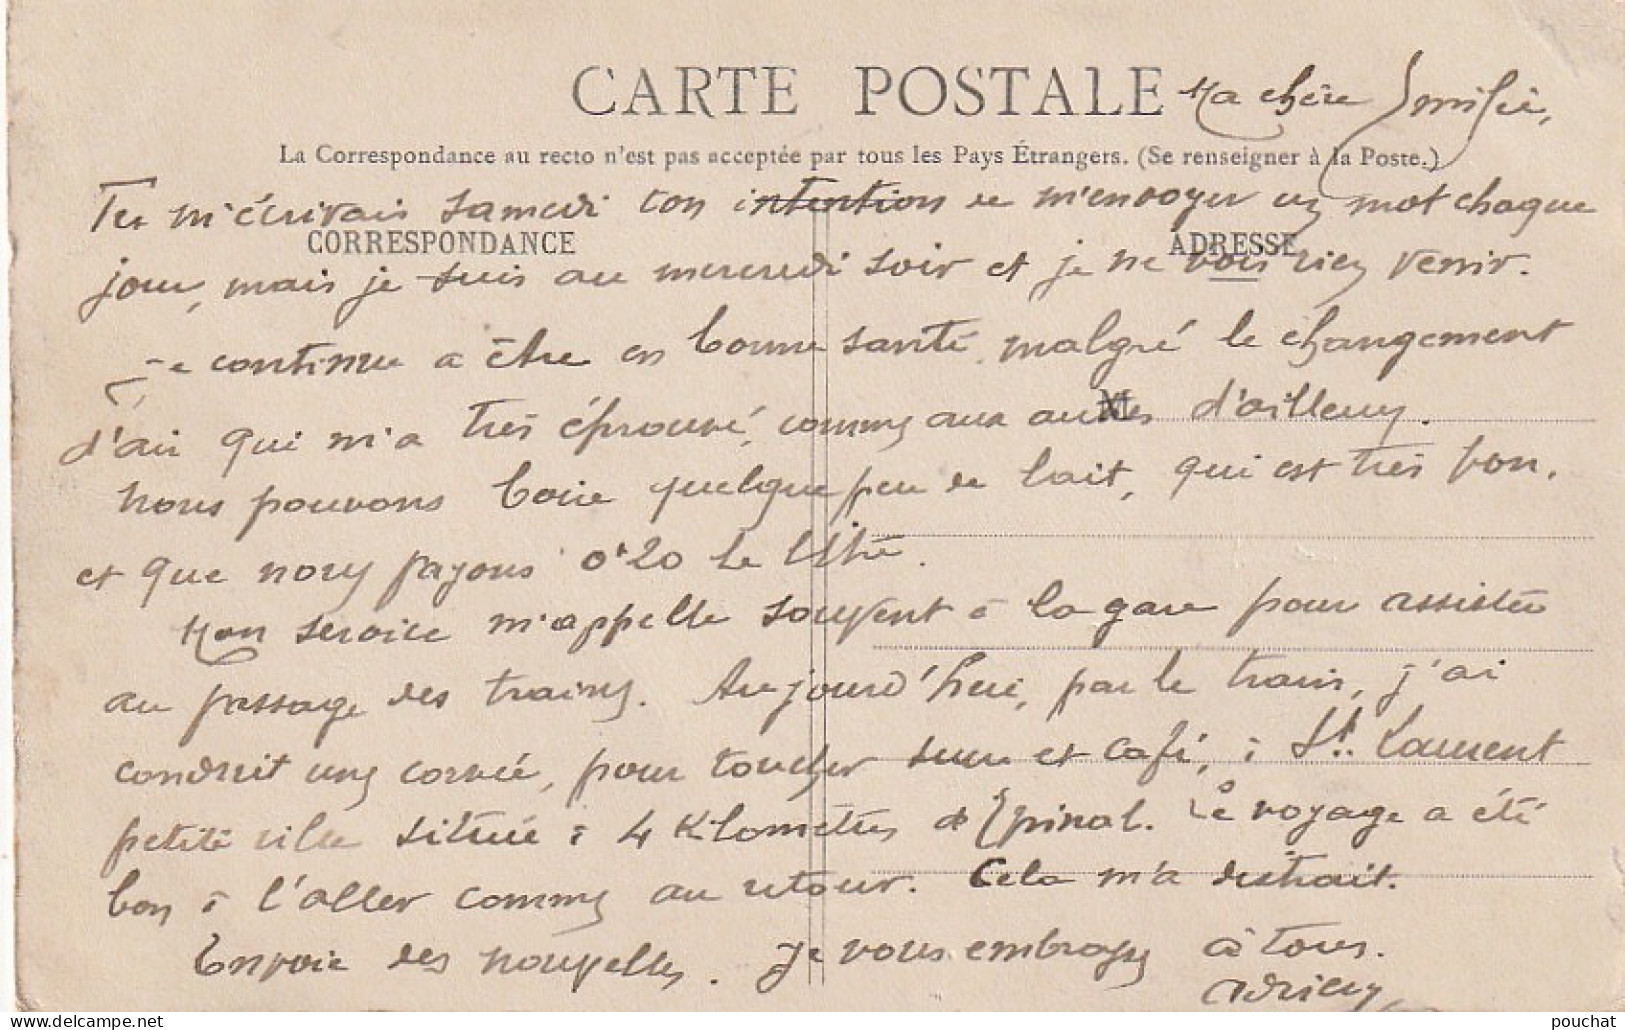 CARTE POSTALE
Ma chère Emilie,
La Correspondance au recto n'est pas acceptée par tous les Pays Étrangers. (Se renseigner à la Poste.)
Tu m'écrivais samedi ton intention de m'envoyer un mot chaque
CORRESPONDANCE
ADRESSE
jour, mais je suis au mercredi soir et je ne vois rien venir.
Je continue à être en bonne santé, malgré le changement
d'air qui m'a très éprouvé, comme aux autres d'ailleurs.
M
Nous pouvons boire quelque peu de lait, qui est très bon,
et que nous payons 0f20 le litre.
Mon service m'appelle souvent à la gare pour assister
au passage des trains. Aujourd'hui, par le train, j'ai
conduit une corvée, pour toucher sucre et café, à St. Laurent
petite ville située à 4 Kilomètres d'Epinal. Le voyage a été
bon à l'aller comme au retour. Cela m'a distrait.
Envoie des nouvelles. Je vous embrasse à tous.
Adrien
pouchat